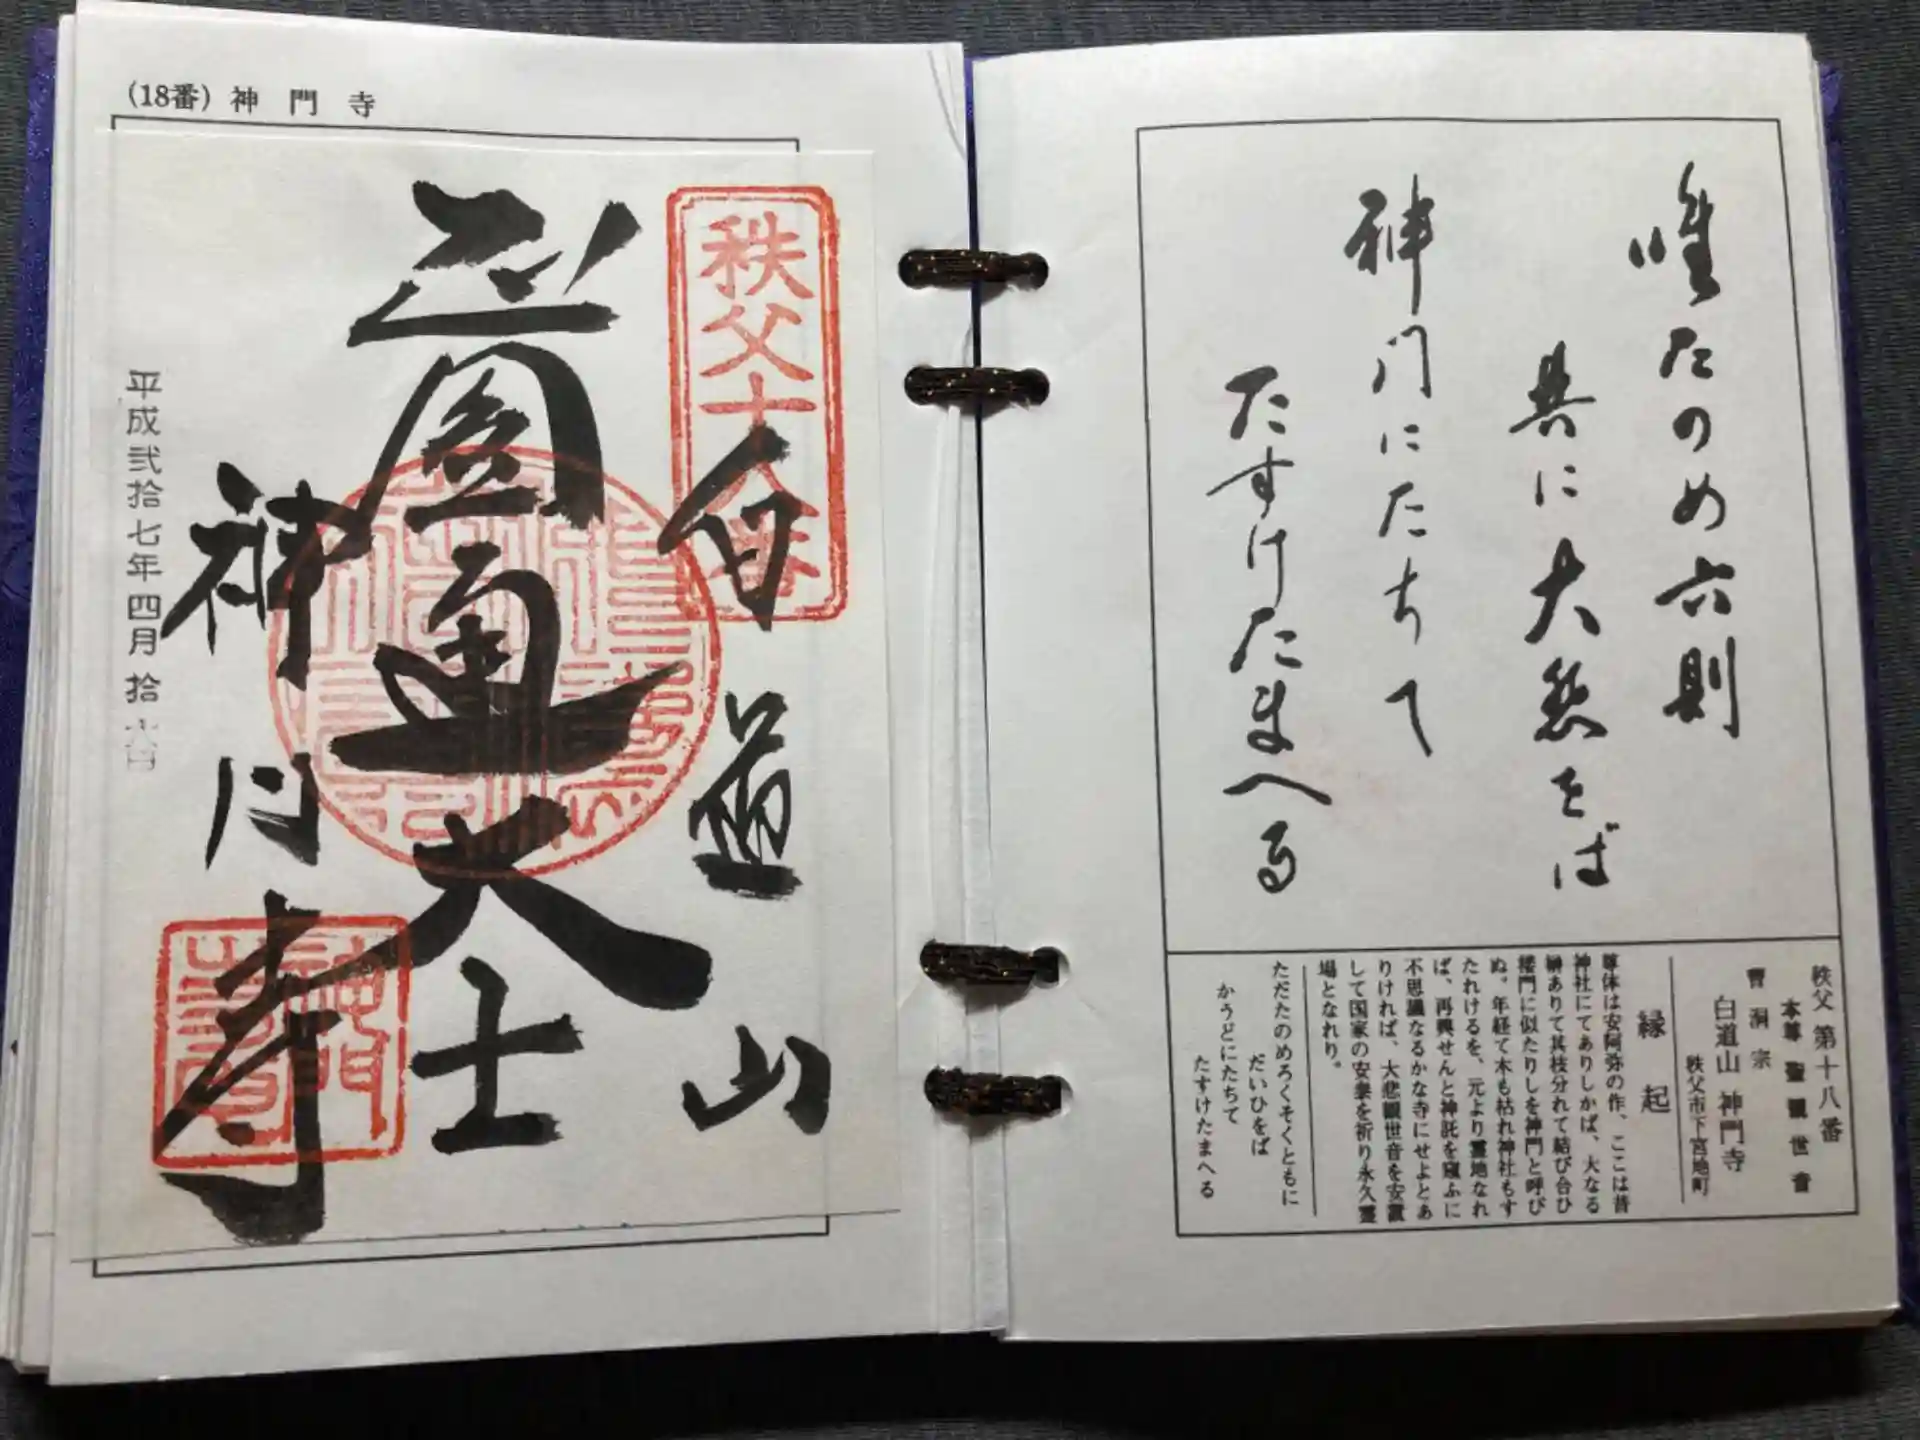 (18番) 神門寺
秩父十八番
白道山
圓通大士
神門寺
平成弐拾七年四月拾
唯たのめ六則
共に大慈をば
神門にたちて
たすけたまへる
秩父 第十八番
本尊 聖観世音
曹洞宗
白道山 神門寺
秩父市下宮地町
縁起
尊体は安阿弥の作、ここは昔
神社にてありしかば、大なる
榊ありて其枝分れて結び合ひ
楼門に似たりしを神門と呼び
ぬ。年経て木も枯れ神社もす
たれけるを、元より霊地なれ
ば、再興せんと神託を窺ふに
不思議なるかな寺にせよとあ
りければ、大悲観世音を安置
して国家の安泰を祈り永久霊
場となれり。
ただたのめろくそくともに
だいひをば
かうどにたちて
たすけたまへる